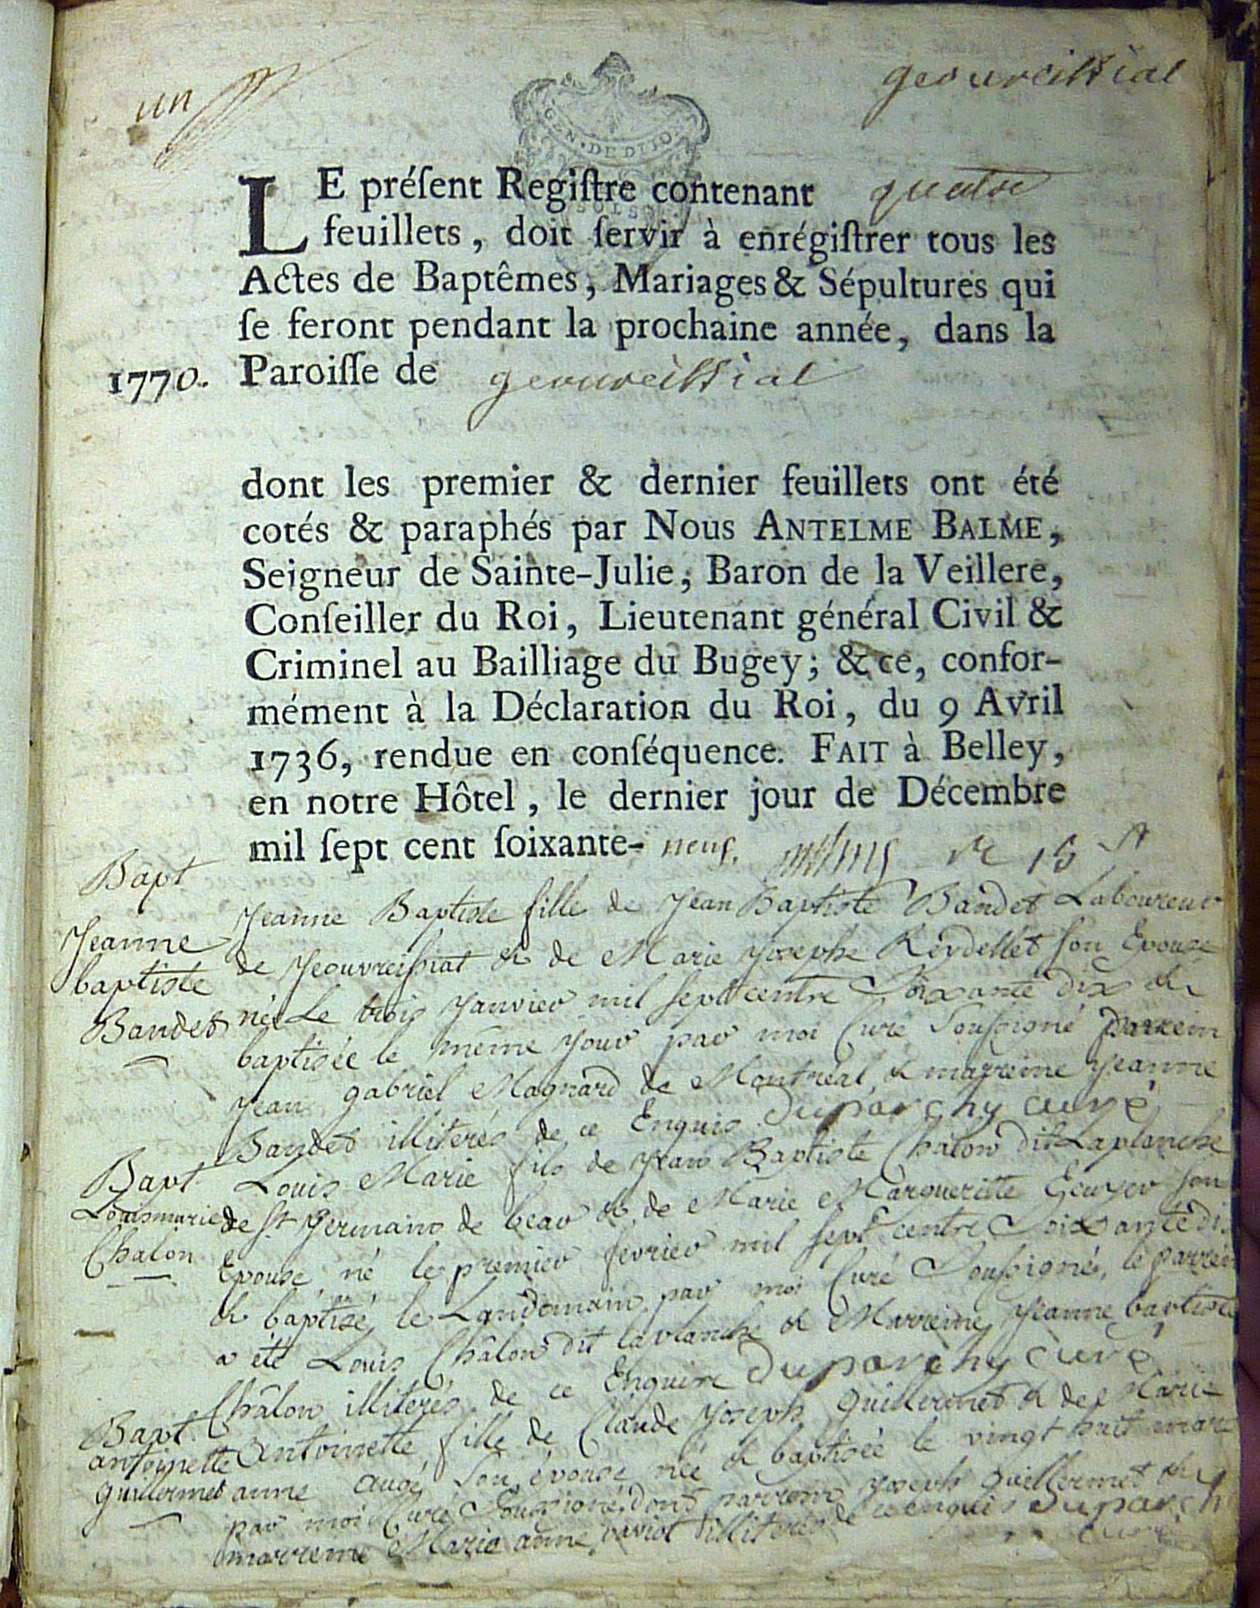 un
geouveissial
GEN. DE DIJO
SOLS
LE préſent Regiſtre contenant quatre
feuillets, doit ſervir à enrégiſtrer tous les
Actes de Baptêmes, Mariages & Sépultures qui
ſe feront pendant la prochaine année, dans la
1770. Paroiſſe de geouveissial
dont les premier & dernier feuillets ont été
cotés & paraphés par Nous ANTELME BALME,
Seigneur de Sainte-Julie, Baron de la Veillere,
Conſeiller du Roi, Lieutenant général Civil &
Criminel au Bailliage du Bugey; & ce, confor-
mément à la Déclaration du Roi, du 9 Avril
1736, rendue en conſéquence. FAIT à Belley,
en notre Hôtel, le dernier jour de Décembre
mil ſept cent ſoixante- neuf.
Bapt
Jeanne
baptiste
Bandet
Jeanne Baptiste fille de Jean Baptiste Bandet Laboureur
de Jeouvreissiat & de Marie Josephe Reydellet son Epouse
née Le trois Janvier mil sept centre Soixante dix &
baptisée le même jour par moi Curé Soussigné Parrein
Jean gabriel Magnard de Montréal, & marreine Jeanne
Bandet illiterés de ce Enquis Duparchy curé
Bapt
Louis marie
Chalon
Louis Marie fils de Jean Baptiste Chalon dit Laplanche
de St Germain de bear & de Marie Margueritte Ecuyer son
Epouse, né le premier fevrier mil sept centre Soixante di
& baptisé le Landemain par moi Curé Soussigné, le parrein
a été Louis Châlon dit laplanche & Marreine Jeanne baptiste
Châlon illiterés de ce Enquire Duparchy curé
Bapt
antoinette
Guillermet
Antoinette fille de Claude Joseph Guillermet & de Marie
anne augé Son épouse née & baptisée le vingt huit mar
par moi Curé Soussigné dont parrein Joseph Guillermet &
marreine Marie anne illiterés de ce enquis Duparch
curé